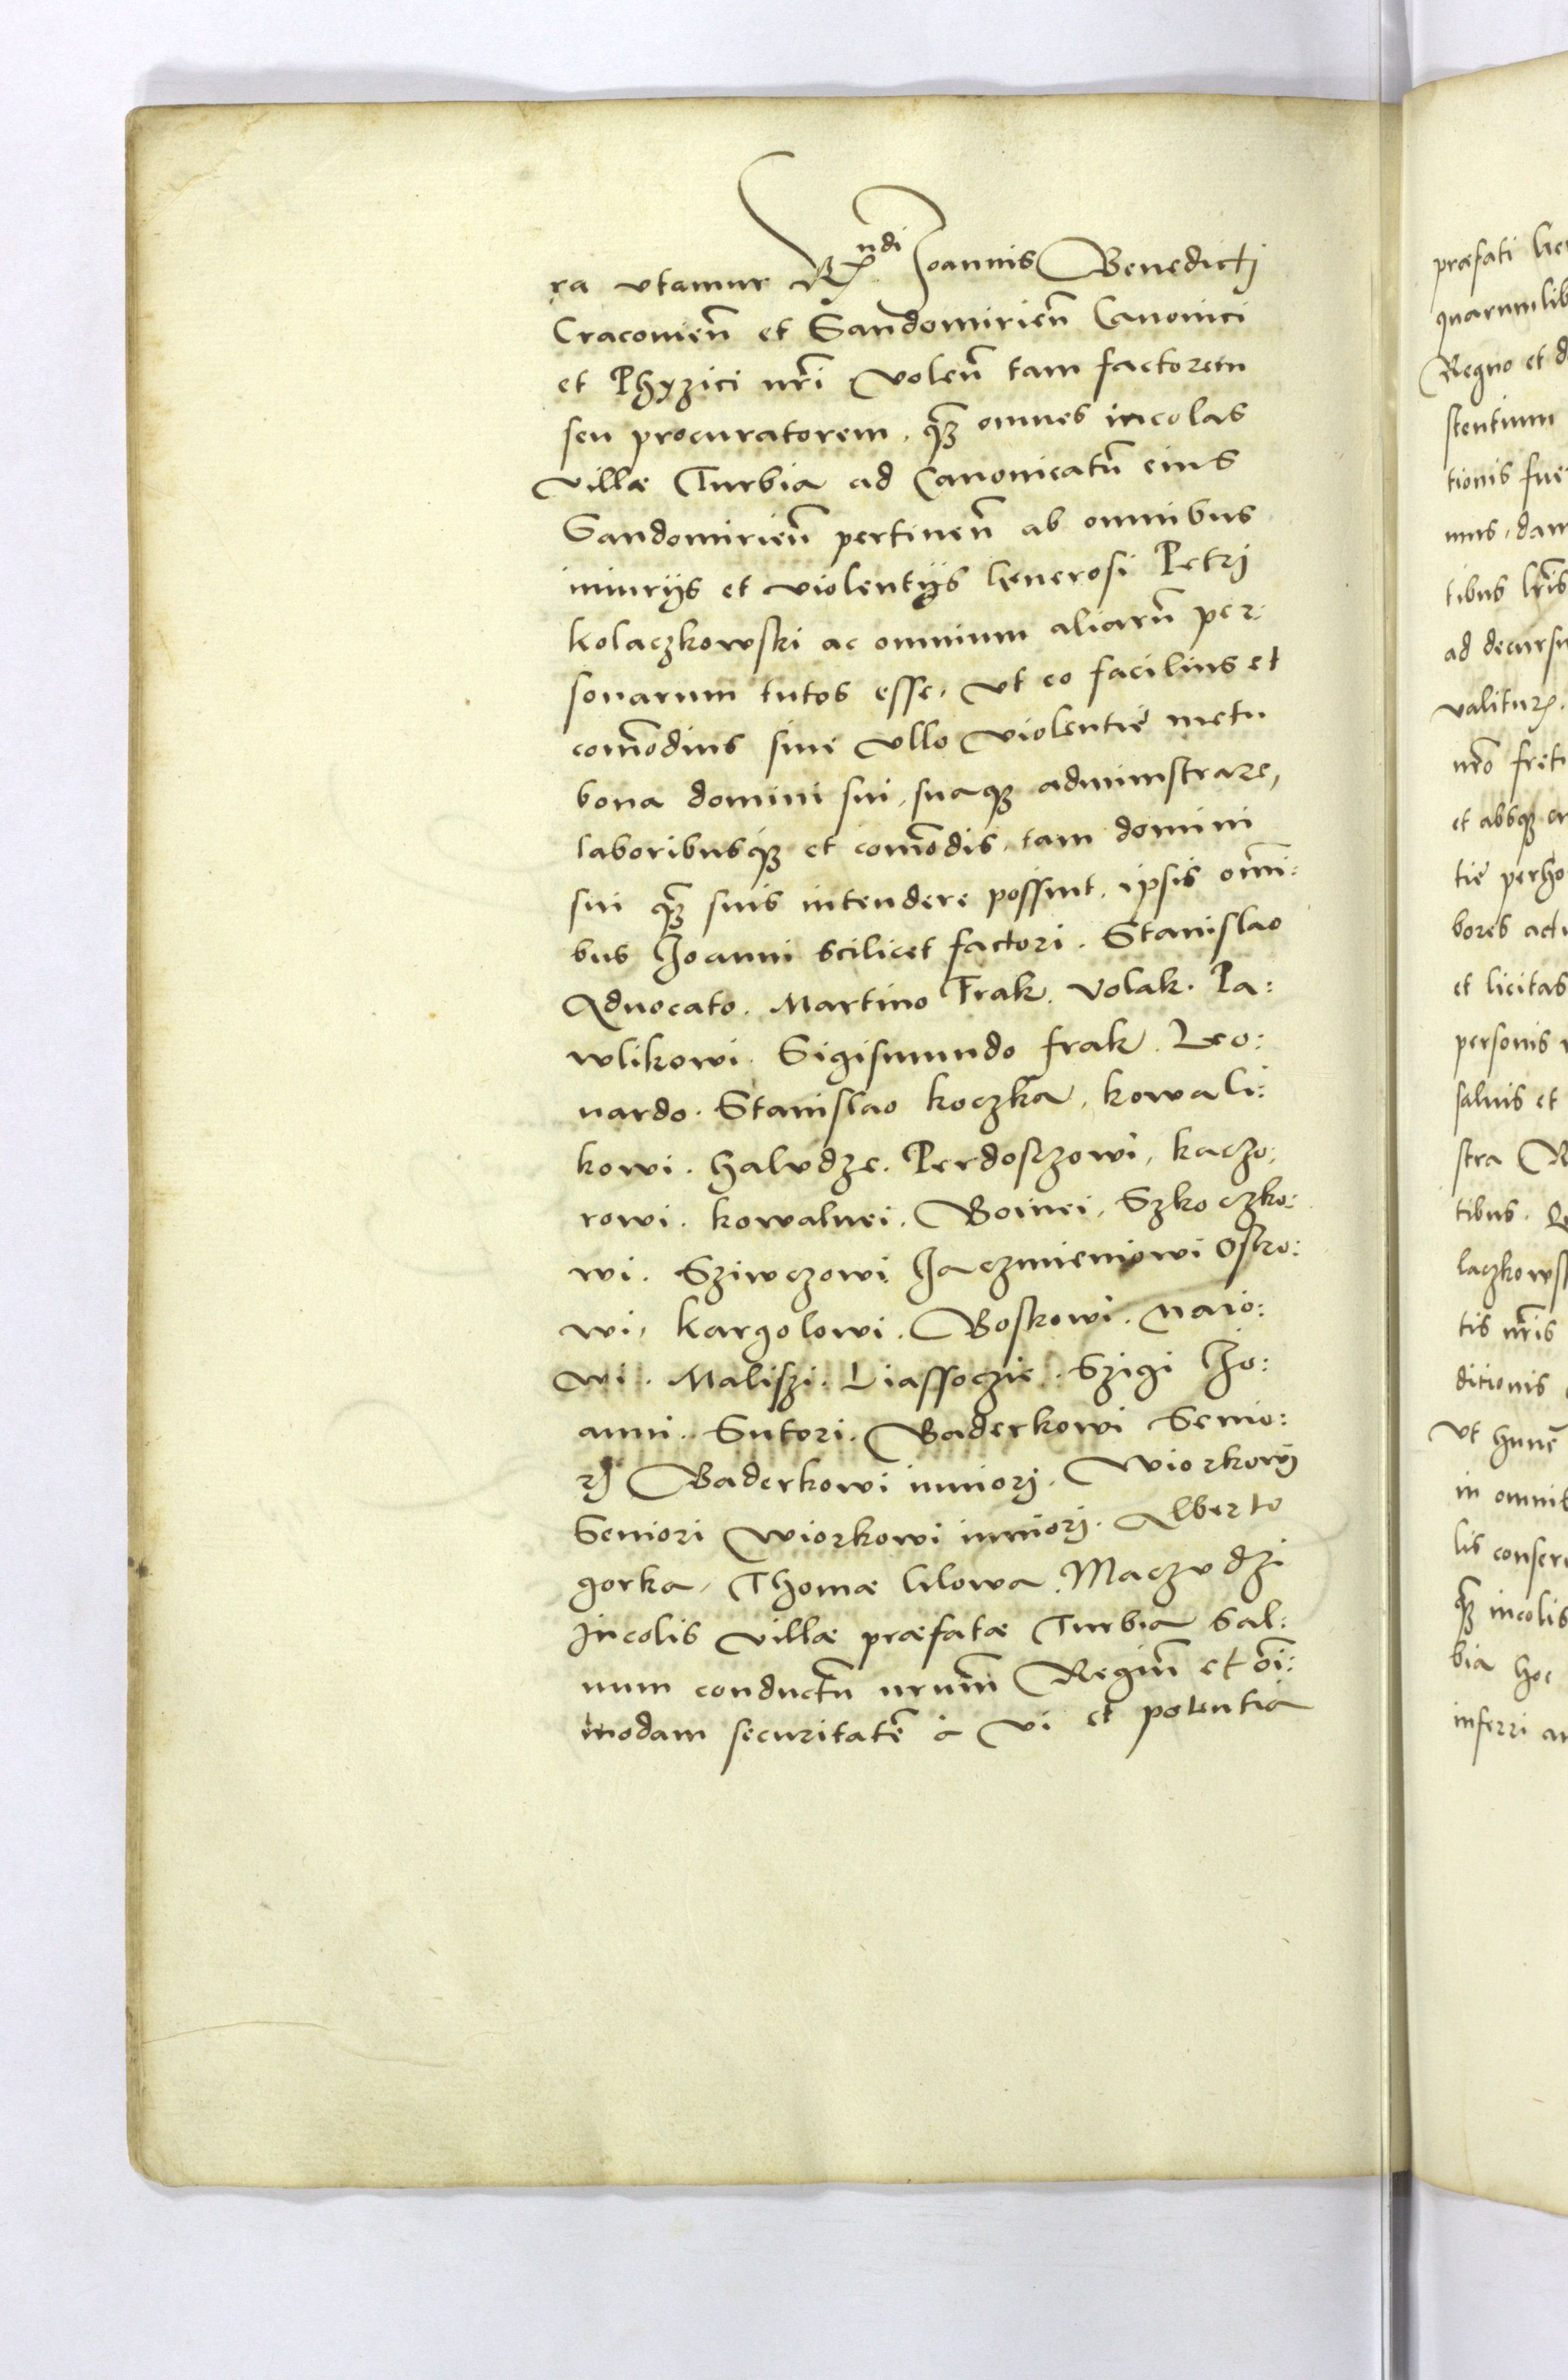 ra vtamur Rndi Joannis Benedicti
Cracovien̄ et Sandomirien̄ Canonici
et Phyzici nr̄i volen̄ tam factorem
seu procuratorem, qꝫ̄ omnes incolas
villæ Turbia ad Canonicatū eius
Sandomirien̄ pertinen̄ ab omnibus
iniurijs et violentijs Generosi Petrj
Kolaczkowski ac omnium aliarū per:
sonarum tutos esse, vt eo facilius et
com̄odius sine vllo violentię metu
bona domini sui, suaqꝫ administrare,
laboribusqꝫ et com̄odis, tam domini
sui qꝫ̄ suis intendere possint, ipsis omī:
bus Joanni scilicet factori. Stanislao
Aduocato. Martino Frak. Volak. Pa:
wlikowi. Sigismundo frak. Leo:
nardo. Stanislao koczka, kowali:
kowi. halvdze. Perdosczowi, kaczo:
rowi. kowalnei. Boinei, Szkoczko:
wi. Sziwczowi Jaczmieniowi Ostro:
wi, kargolowi. Boskowi. naio:
wi. Maliszi. Liassoczie. Szigi Jo:
anni. Sutori. Baderkowi Senio:
rj Baderkowi iuniorj. Wiorkowj
Seniori Wiorkowi iuniorj. Alberto
gorka, Thomæ lilowa. Maczvdzi
Jncolis villæ præfatæ Turbia Sal:
uum conductū nrūm Regiūm et oī:
modam securitatē à vi et potentia
præfati
quarumlib
Regno et d
stentium
tionis fue
mus, dam
tibus lr̄is
ad decursu
valitur.
nr̄o freti
et absqꝫ
tię perho
bores actu
et licitas
personis
saluis et
stra R
tibus. Q
laczkowsk
tis nr̄is
ditionis
vt hunc
in omnib
lis conser
qꝫ̄ incolis
bia hoc
inferri an